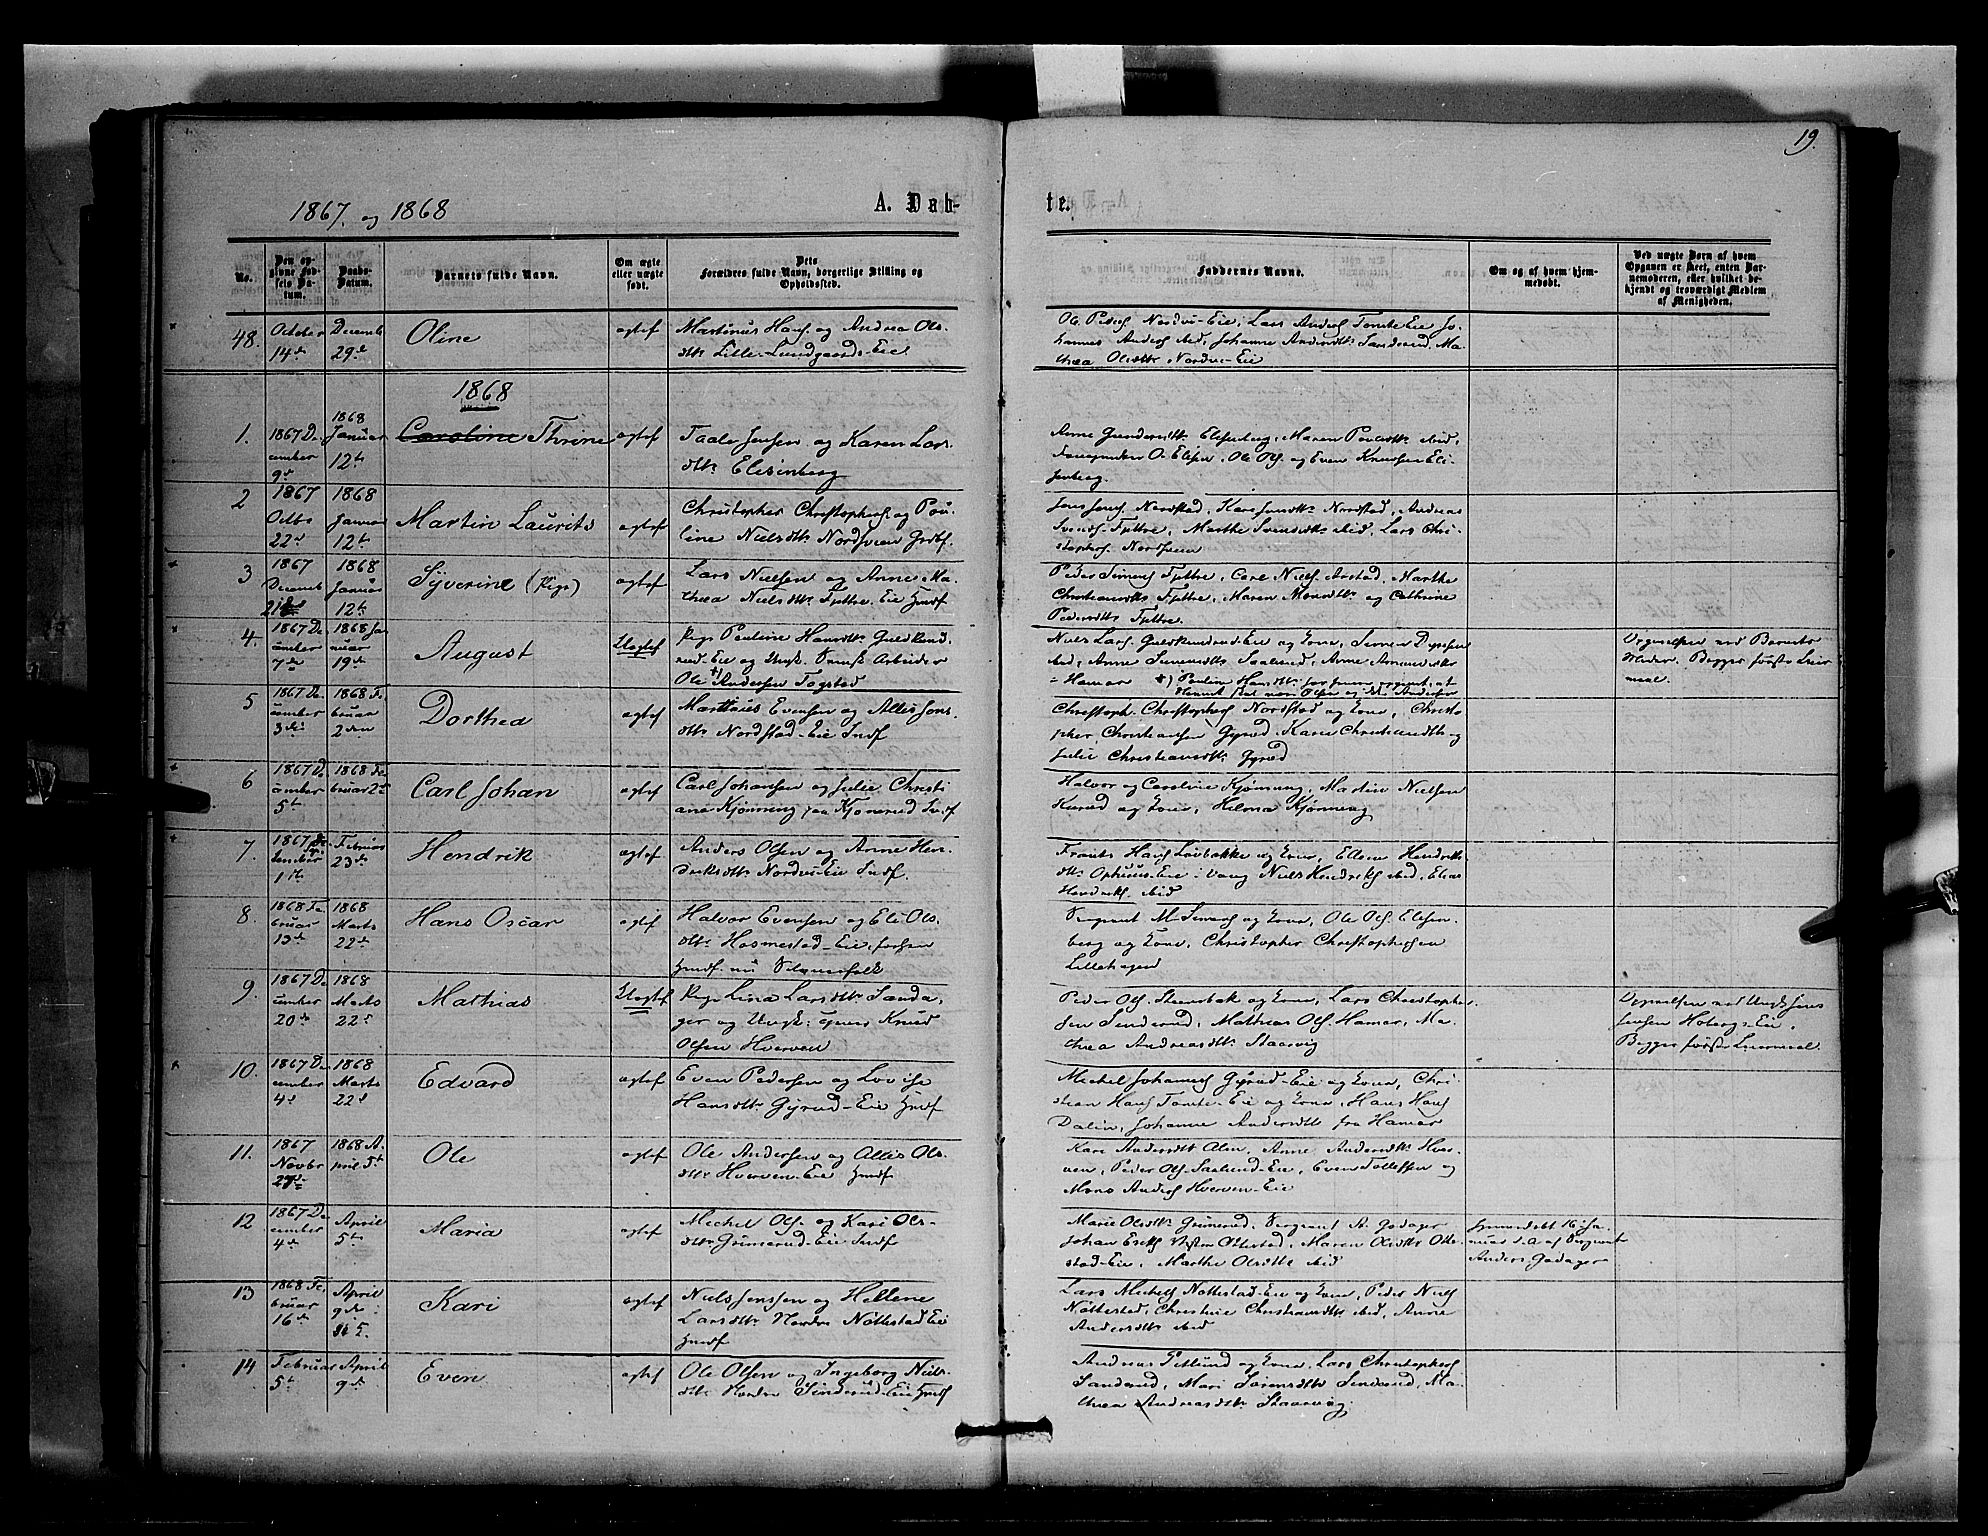 19.
1867 og 1868
A. Døb-
te.
No.
Den op-
givne Fød-
sels Da-
tum.
Daabs-
Datum.
Barnets fulde Navn.
Om ægte
eller uægte
født.
Dets
Forældres fulde Navn, borgerlige Stilling og
Opholdssted.
Faddernes Navne.
Om og af hvem hjem-
medøbt.
Ved uægte Børn af hvem
Opgaven er skeet, enten Bar-
nemoderen, eller hvilket be-
kjendt og troværdigt Medlem
af Menigheden.
48.
October
14de
Decemb
29de
Oline
ægtef
Martinus Hans. og Andrea Ols-
dtr Lille-Lundgaards-Eie
Ole Peders Nordvi-Eie, Lars Anders Tomte Eie Jo-
hannes Anders ibid, Johanne Andersdtr Sanderud, Ma-
thea Olsdtr Nordvi-Eie
1868
1.
1867 De-
cember
9de
1868
Januar
12te
Caroline Thrine
ægtef
Taale Jensen og Karen Lars-
dtr Elisenberg
Anne Gundersdtr Elisenberg, Maren Poulsdtr ibid,
O. Elisen, Ole Ols. og Even Knudsen Eli-
senberg.
2
1867
Octbr
22de
1868
Januar
12te
Martin Laurits
ægtef
Christopher Christophers og Pou-
line Nielsdtr Nordsveen Grdbf.
Jens Jens. Nordstad, Kari Jensdtr Nordstad, Andreas
Svends. Tyttre, Marthe Svendsdtr ibid, Lars Chri-
stophers. Nordsveen
3
1867
Decemb
21de
1868
Januar
12te
Syverine (Pige)
ægtef
Lars Nielsen og Anne Ma-
thea Nielsdtr Tyttre-Eie Hmdf
Peder Simens Tyttre, Carl Niels. Arstad, Marthe
Christiansdtr Tyttre, Maren Monsdtr og Cathrine
Pedersdtr Tyttre.
4.
1867 De-
cember
7de
1868 Ja-
nuar
19de
August
Uægtef
Pige Pauline Hansdtr Guldkund-
rud-Eie og Ungk. Svensk Arbeider
Ole Andersen Togstad
Niels Lars. Guldkundrud-Eie og Kone, Simen
ibid, Anne Simensdtr Saalerud, Anne Amundsdtr
Hamar *) Pauline Hansdtr
Opgivelsen ved Barnets
Moder. Begges første Leier-
maal.
5
1867 De-
cember
3die
1868 Fe-
bruar
2den
Dorthea
ægtef
Marthius Evensen og Allis Jons-
dtr Nordstad-Eie Indf
Christoph. Christophers Nordstad og Kone, Christo-
pher Christiansen Gyrud, Karen Christiansdtr og
Julie Christiansdtr Gyrud
6
1867 De-
cember
5te
1868 Fe-
bruar 2de
Carl Johan
ægtef
Carl Johansen og Julie Christi
ane Kjønning paa Kjonerud Indf
Halvor og Caroline Kjønning, Martin Nielsen
og Kone, Helma Kjønning
7.
1867
tember
1ste
Februar
23de
Hendrik
ægtef
Anders Olsen og Anne Hen-
driksdtr Nordvi-Eie Indf.
Frants Hans Løvbakke og Kone, Ellen Hendriks-
dtr Ophuus-Eie i Vang Niels Hendriks ibid, Elias
Hendriks. ibid
8.
1868 Fe-
bruar
13de
1868
Marts
22de
Hans Oscar
ægtef
Halvor Evensen og Eli Ols-
dtr Hosmestad-Eie, forhen
Hmdf. nu
Sergeant M. Simens og Kone, Ole Ols. Elisen-
berg og Kone, Christopher Christophersen
Lillehagen
9.
1867 De-
cember
20de
1868
Marts
22de
Mathias
Uægtef
Pige Lina Larsdtr Sanda-
ger og Ungk: Knud
Olsen Hverven
Peder Ols. Steensbak og Kone, Lars Christopher-
sen Sinderud, Mathias Ols. Hamar, Ma-
thea Andreasdtr Staavig
Opgivelsen ved Ungk Jens
Jensen Hoberg-Eie.
Begges første Leiermaal.
10.
1867 De-
cember
4de
1868
Marts
22de
Edvard
ægtef
Even Pedersen og Lovise
Hansdtr Gyrud-Eie Hmdf
Michel Johannes Gyrud-Eie og Kone, Chri-
stian Hans Tomte-Eie og Kone, Hans Hans
Dalin, Johanne Andersdtr fra Hamar
11.
1867
Novbr
27de
1868 A-
pril 5te
Ole
ægtef
Ole Andersen og Allis Ols-
dtr Hverven-Eie Hmdf
Kari Andersdtr Alen, Anne Andersdtr Hver-
ven, Peder Ols. Saelund-Eie, Even Tollefsen og
Mons Anders Hverven-Eie
12
1867 De-
cember
4de
April
5te
Maria
ægtef
Michel Ols. og Kari Ols-
dtr Grimerud-Eie Indf
Marie Olsdtr Grimerud, Sergeant A. Godager
Johan Eriks Vestre Ottestad, Maren Olsdtr Otte-
stad-Eie, Marthe Olsdtr ibid
Hjemmedøbt 16 Ja-
nuar d. A. af Sergeant
Anders Godager
13
1868 Fe-
bruar
16de
April
9de
Kari
ægtef
Niels Jenssen og Hellene
Larsdtr Nordre Nøttestad Eie
Hmdf
Lars Michels Nøttestad-Eie og Kone, Peder Niels
Nøttestad, Christine Christiansdtr ibid, Anne
Andersdtr ibid
14
Februar
5te
April
9de
Even
ægtef
Ole Olsen og Ingeborg Niels-
dtr Nordre Sinderud-Eie Hmdf
Andreas Petlund og Kone, Lars Christophers
Sanderud, Mari Sørensdtr Sinderud, Ma-
thea Andreasdtr Staavig.